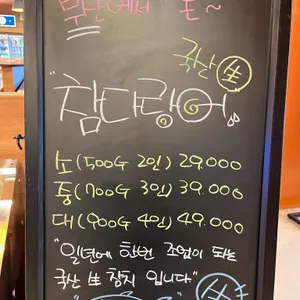 부산에서 온~
국산 生
"참다랑어"
소(500G 2인) 29.000
중(700G 3인) 39.000
대(900G 4인) 49.000
"일년에 한번 조업이 되는
국산 生 참치 입니다"
生